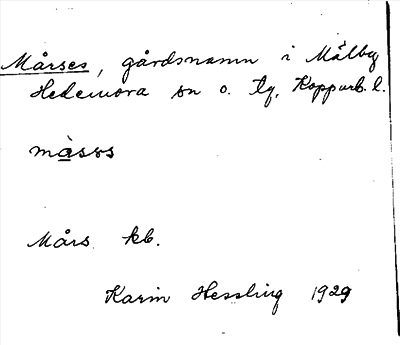 Mårses, gårdsnamn i Målby
Hedemora sn o. tg, Kopparb. l.
Mårs kb.
Karin Hessling 1929